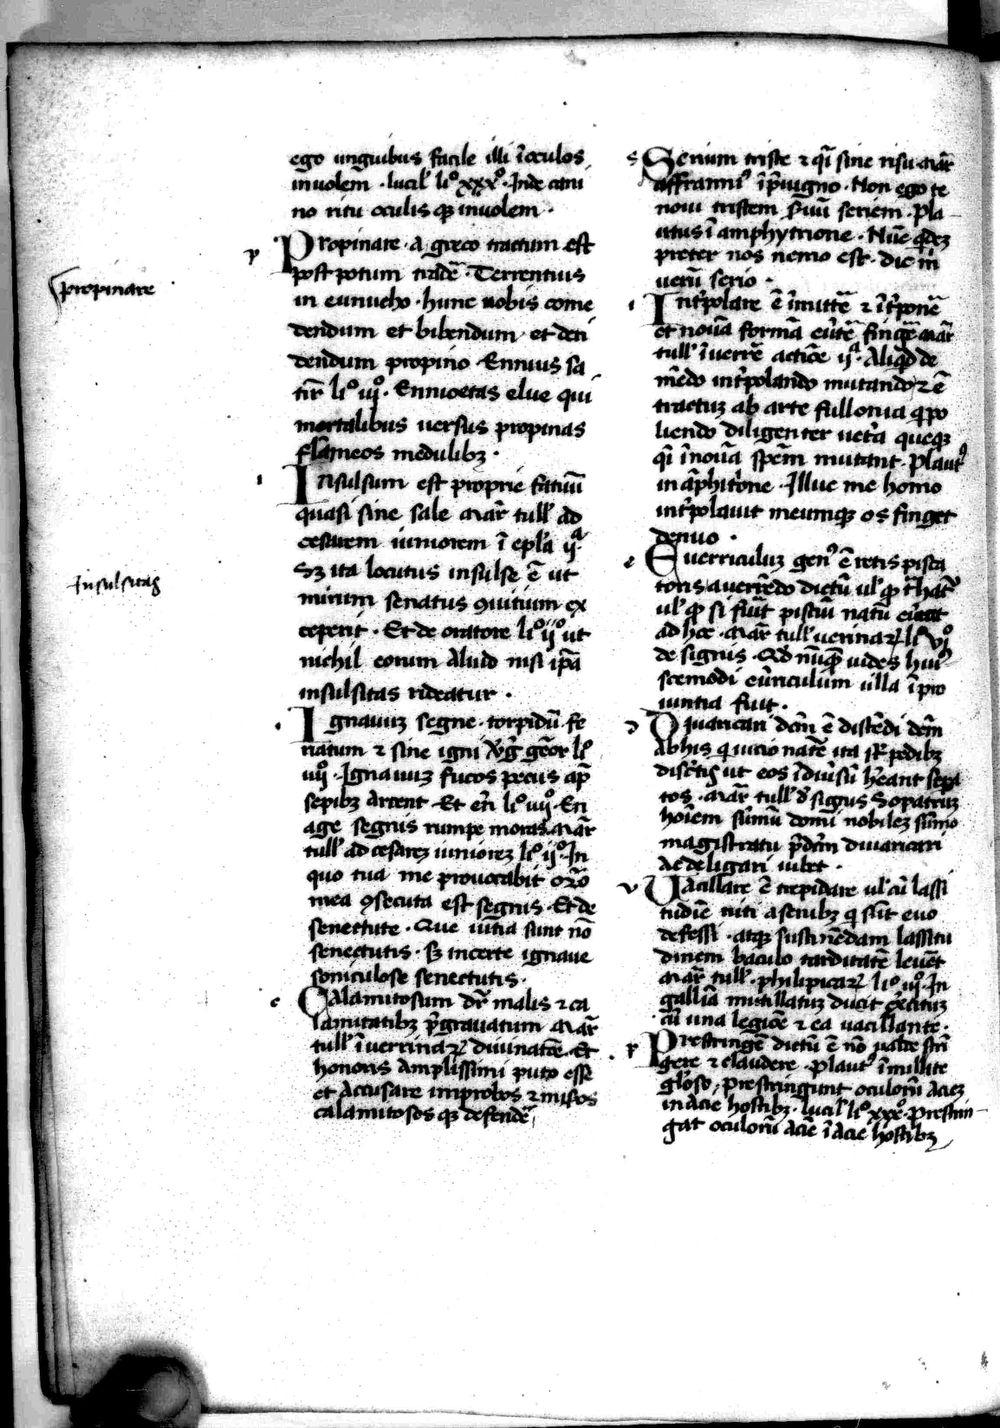 ego unguibus facile illi ĩoculos
inuolem · lucil' li° xxx° · Inde cani
no ritu oculis qꝫ inuolem ·
p Propinare · a greco tractum est
propinare
post potum tradẽ · Terrentius
in eunucho · hunc uobis come
dendum et bibendum et deri
dendum propino · Ennius sa
tir̃ li° iij° · Ennioetas elue qui
mortalibus uersus propinas
flameos medulibꝫ ·
i Insulsum est proprie fatuũ
quasi sine sale mar̃ tull' ad
cesarem iuniorem ĩ epl'a ijª ·
Insulsitas
Sꝫ ita locutus insulse ẽ ut
mirum senatus ꝯuitium ex
ceperit · Et de oratore li° ij° ut
nichil eorum aliud nisi ip̃a
insulsitas rideatur ·
Ignauuꝫ segne · torpidũ · fe
riatum ⁊ sine igni v̾g̃ geor̃ li°
iiij° · Ignauuꝫ fucos pecus ap̃
sepibꝫ arcent · Et er̃i li° iiij° · En
age segnis rumpe moras · mar̃
tull' ad cesareꝫ iunioreꝫ li° ij° · In
quo tua me prouocabit or̃o
mea ꝯsecuta est segnis · Et de
senectute · Que uitia sunt nõ
senectutis · Sꝫ incerte ignaue
soniculose senectutis ·
c Calamitosum dr̃ malis ⁊ ca
lamitatibꝫ p̃grauatum mar̃
tull' ĩ uerrinaꝝ diuinatõe · Et
honoris amplissimi puto esse
et accusare improbos ⁊ mis̃os
calamitosos qꝫ defendẽ
s Serium triste ⁊ q̃i sine risu mar̃
affranni' ĩ p̃iuigno · Non ego te
noui tristem s̃uũ seriem · Pla
utus ĩ amphytrione · Nũc q̃deꝫ
preter nos nemo est · dic m̃
uerũ serio ·
i Int̾polare ẽ ĩmittẽ ⁊ ĩt̾ponẽ
et nouã formã eũtẽ fing̃e mar̃
tull' ĩ uerrẽ actiõe ijª · Aliq̃d de
m̃edo int̾polando mutando ⁊ ẽ
tractuꝫ ab arte fullonia q̃ po
liendo diligenter uet̾a quequꝫ
q̃i ĩ nouã sp̃em mutant · Plaut'
in ãphit̾one · Illuc me homo
int̾polauit meumqꝫ os finget
denuo ·
e Euerriculuꝫ gen' ẽ retis pisca
toris a uerrẽdo dictũ ul' q̃ t̃hat̃
ul' q̃ si fũit pisciũ natũ
ad hoc · mar̃ tull' uerinaꝝ li° vi°
de signis · Qd nũq̃ uides hui'
scemodi eũriculum ulla ĩ pro
uintia fuit ·
d Diuaricari dc̃m ẽ distẽdi dc̃m
ab his q̃ uicio natẽ ita
distẽtis ut eos ĩ diũsũ h̃eant sepa
tos · mar̃ tull' d' signis Sopatruꝫ
hõiem sũmũ domi nobileꝫ sũmo
magistratu p̃dc̃m diuaricari
ac deligari iubet ·
v Vacillare ẽ trepidare ul' cũ lassi
tudiẽ niti a senibꝫ q̃ sũt euo
defessi · atqꝫ sustinẽdam lassitu
dinem baculo tarditatẽ leuẽt
mar̃ tull' · philipicaꝝ li° iij° · In
galliã mutillatuꝫ ducit ex̾cituꝫ
cũ una legiõe ⁊ ea uacillante ·
p Prestring̃e dictũ ẽ nõ ualde stri
gere ⁊ claudere · Plaut' ĩ milite
gl'oso · prestringunt oculorũ acieꝫ
in acie hostibꝫ · lucil' li° xxx° · Prestrin
gat oculorũ aciẽ ĩ acie hostibꝫ